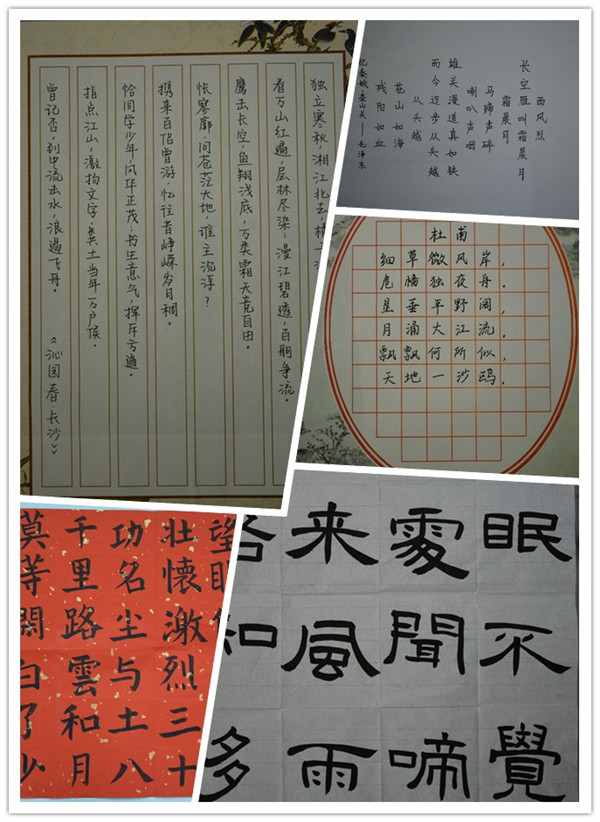 独立寒秋，湘江北去，
看万山红遍，层林尽染；漫江碧透，百舸争流。
鹰击长空，鱼翔浅底，万类霜天竞自由。
怅寥廓，问苍茫大地，谁主沉浮？
携来百侣曾游，忆往昔峥嵘岁月稠。
恰同学少年，风华正茂；书生意气，挥斥方遒。
指点江山，激扬文字，粪土当年万户侯。
曾记否，到中流击水，浪遏飞舟。
《沁园春 长沙》
西风烈
长空雁叫霜晨月
霜晨月
马蹄声碎
喇叭声咽
雄关漫道真如铁
而今迈步从头越
从头越
苍山如海
残阳如血
忆秦娥·娄山关——毛泽东
杜甫
细草微风岸，
危樯独夜舟。
星垂平野阔，
月涌大江流。
飘飘何所似，
天地一沙鸥。
望眼
壮懷激烈三十
功名尘与土八
千里路雲和月
莫等閑白了少
眠不覺
處聞啼
来風雨
知多